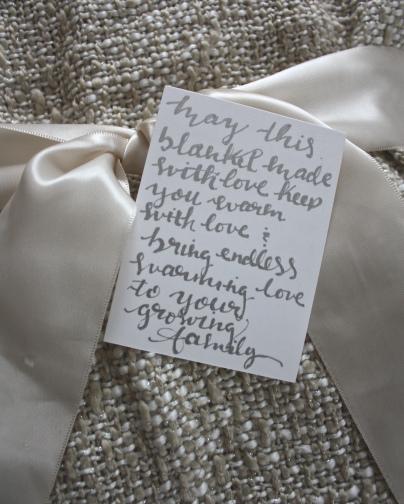 may this
blanket made
with love keep
you warm
with love &
bring endless
swarming love
to your
growing
family